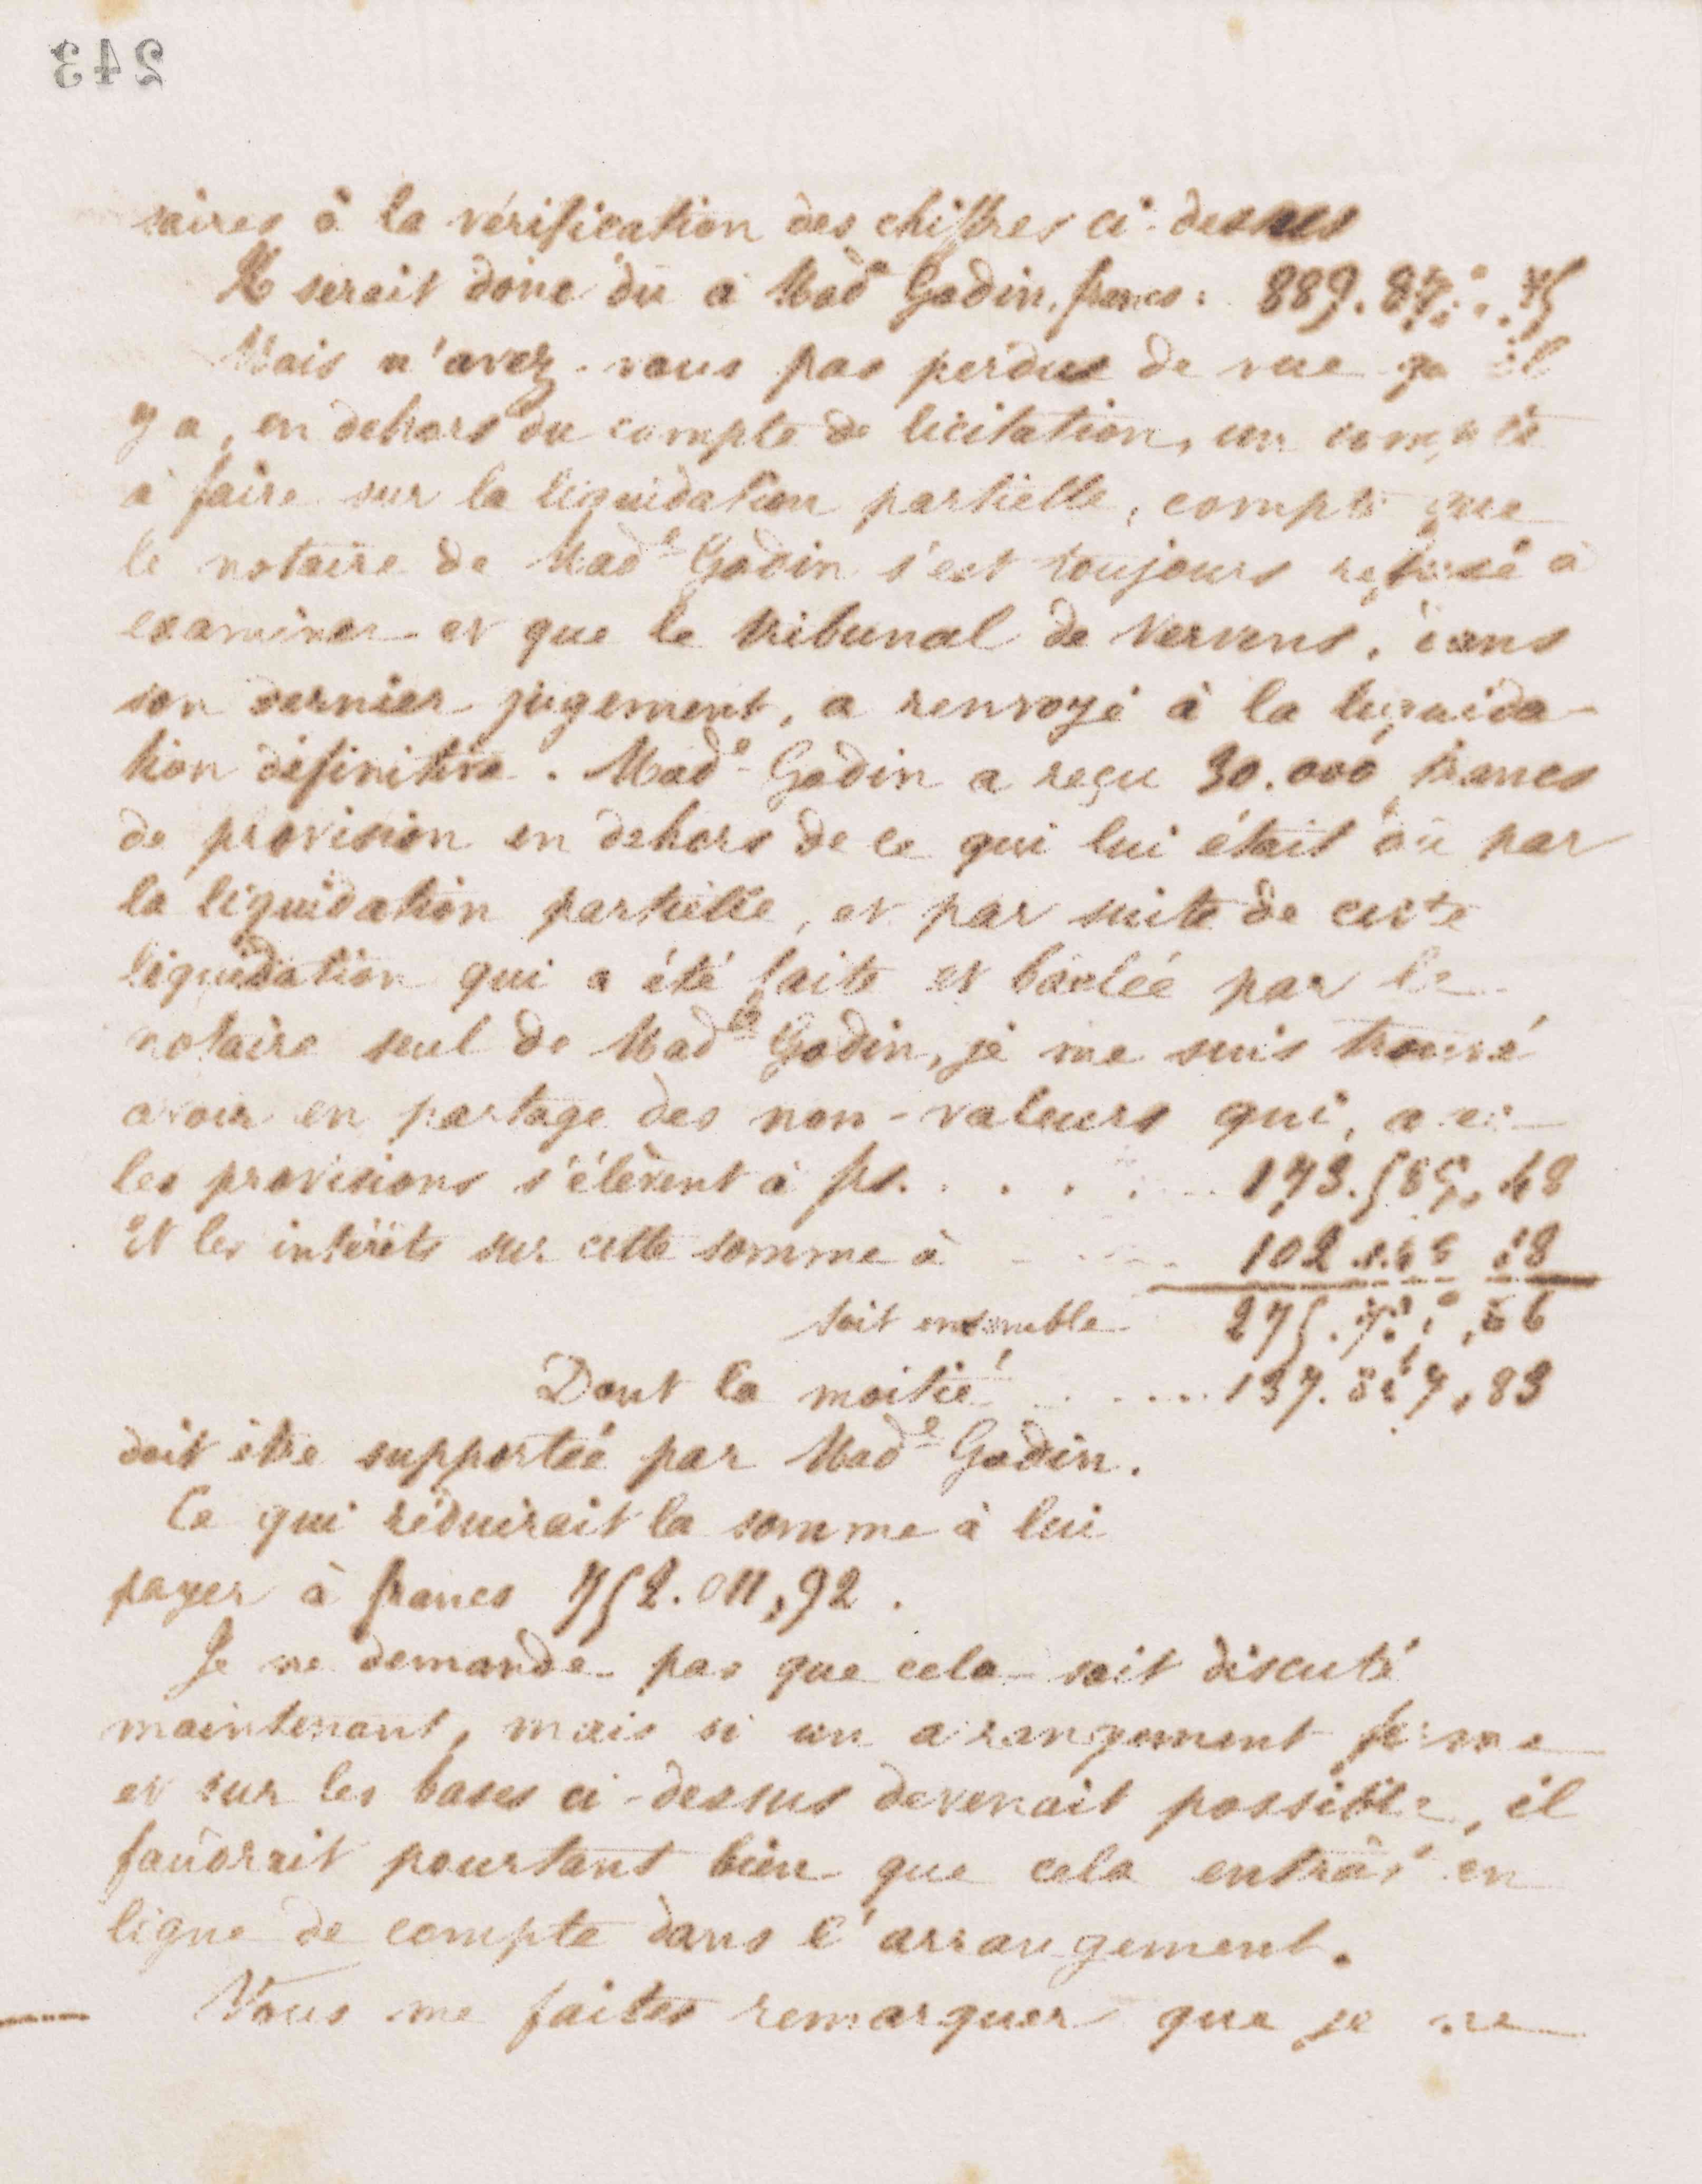 243
saires à la vérification des chiffres ci-dessus
Il serait donc dû à Mad<sup>e</sup> Godin, francs: 889.8
Mais n'avez-vous pas perdu de vue qu'il
y a, en dehors du compte de licitation, un compte
à faire sur la liquidation partielle, compte que
le notaire de Mad<sup>e</sup> Godin s'est toujours refusé à
examiner et que le tribunal de Vervins, dans
son dernier jugement, a renvoyé à la liquida-
tion définitive. Mad<sup>e</sup> Godin a reçu 30.000 francs
de provision en dehors de ce qui lui était dû par
la liquidation partielle, et par suite de cette
liquidation qui a été faite et baclée par le
notaire seul de Mad<sup>e</sup> Godin, je me suis trouvé
avoir en partage des non-valeurs qui, avec
les provisions s'élèvent à frs. . . . . . 173.585,48
Et les intérêts sur cette somme à 102
soit ensemble 275.
Dont la moitié . . . . 137.867,83
doit être supportée par Mad<sup>e</sup> Godin.
Ce qui réduirait la somme à lui
payer à francs 752.011,92.
Je ne demande pas que cela soit discuté
maintenant, mais si un arrangement ferme
et sur les bases ci-dessus devenait possible, il
faudrait pourtant bien que cela entrât en
ligne de compte dans l'arrangement.
Vous me faites remarquer que je ne